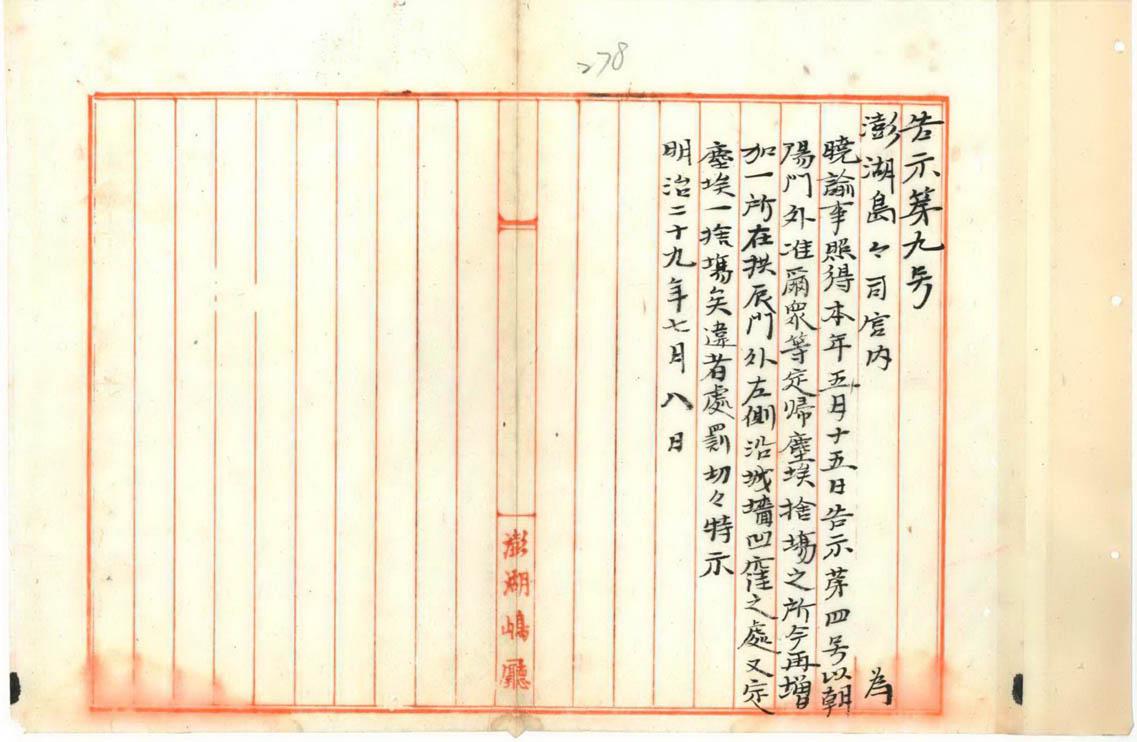 278
告示第九号
澎湖島々司官内 為
曉諭事照得本年五月十五日告示第四号以朝
陽門外准爾眾等定歸塵埃捨場之所今再增
加一所在拱辰門外左側沿城墻凹窪之處又定
塵埃一捨場矣違者處罰切々特示
明治二十九年七月八日
澎湖嶋廳